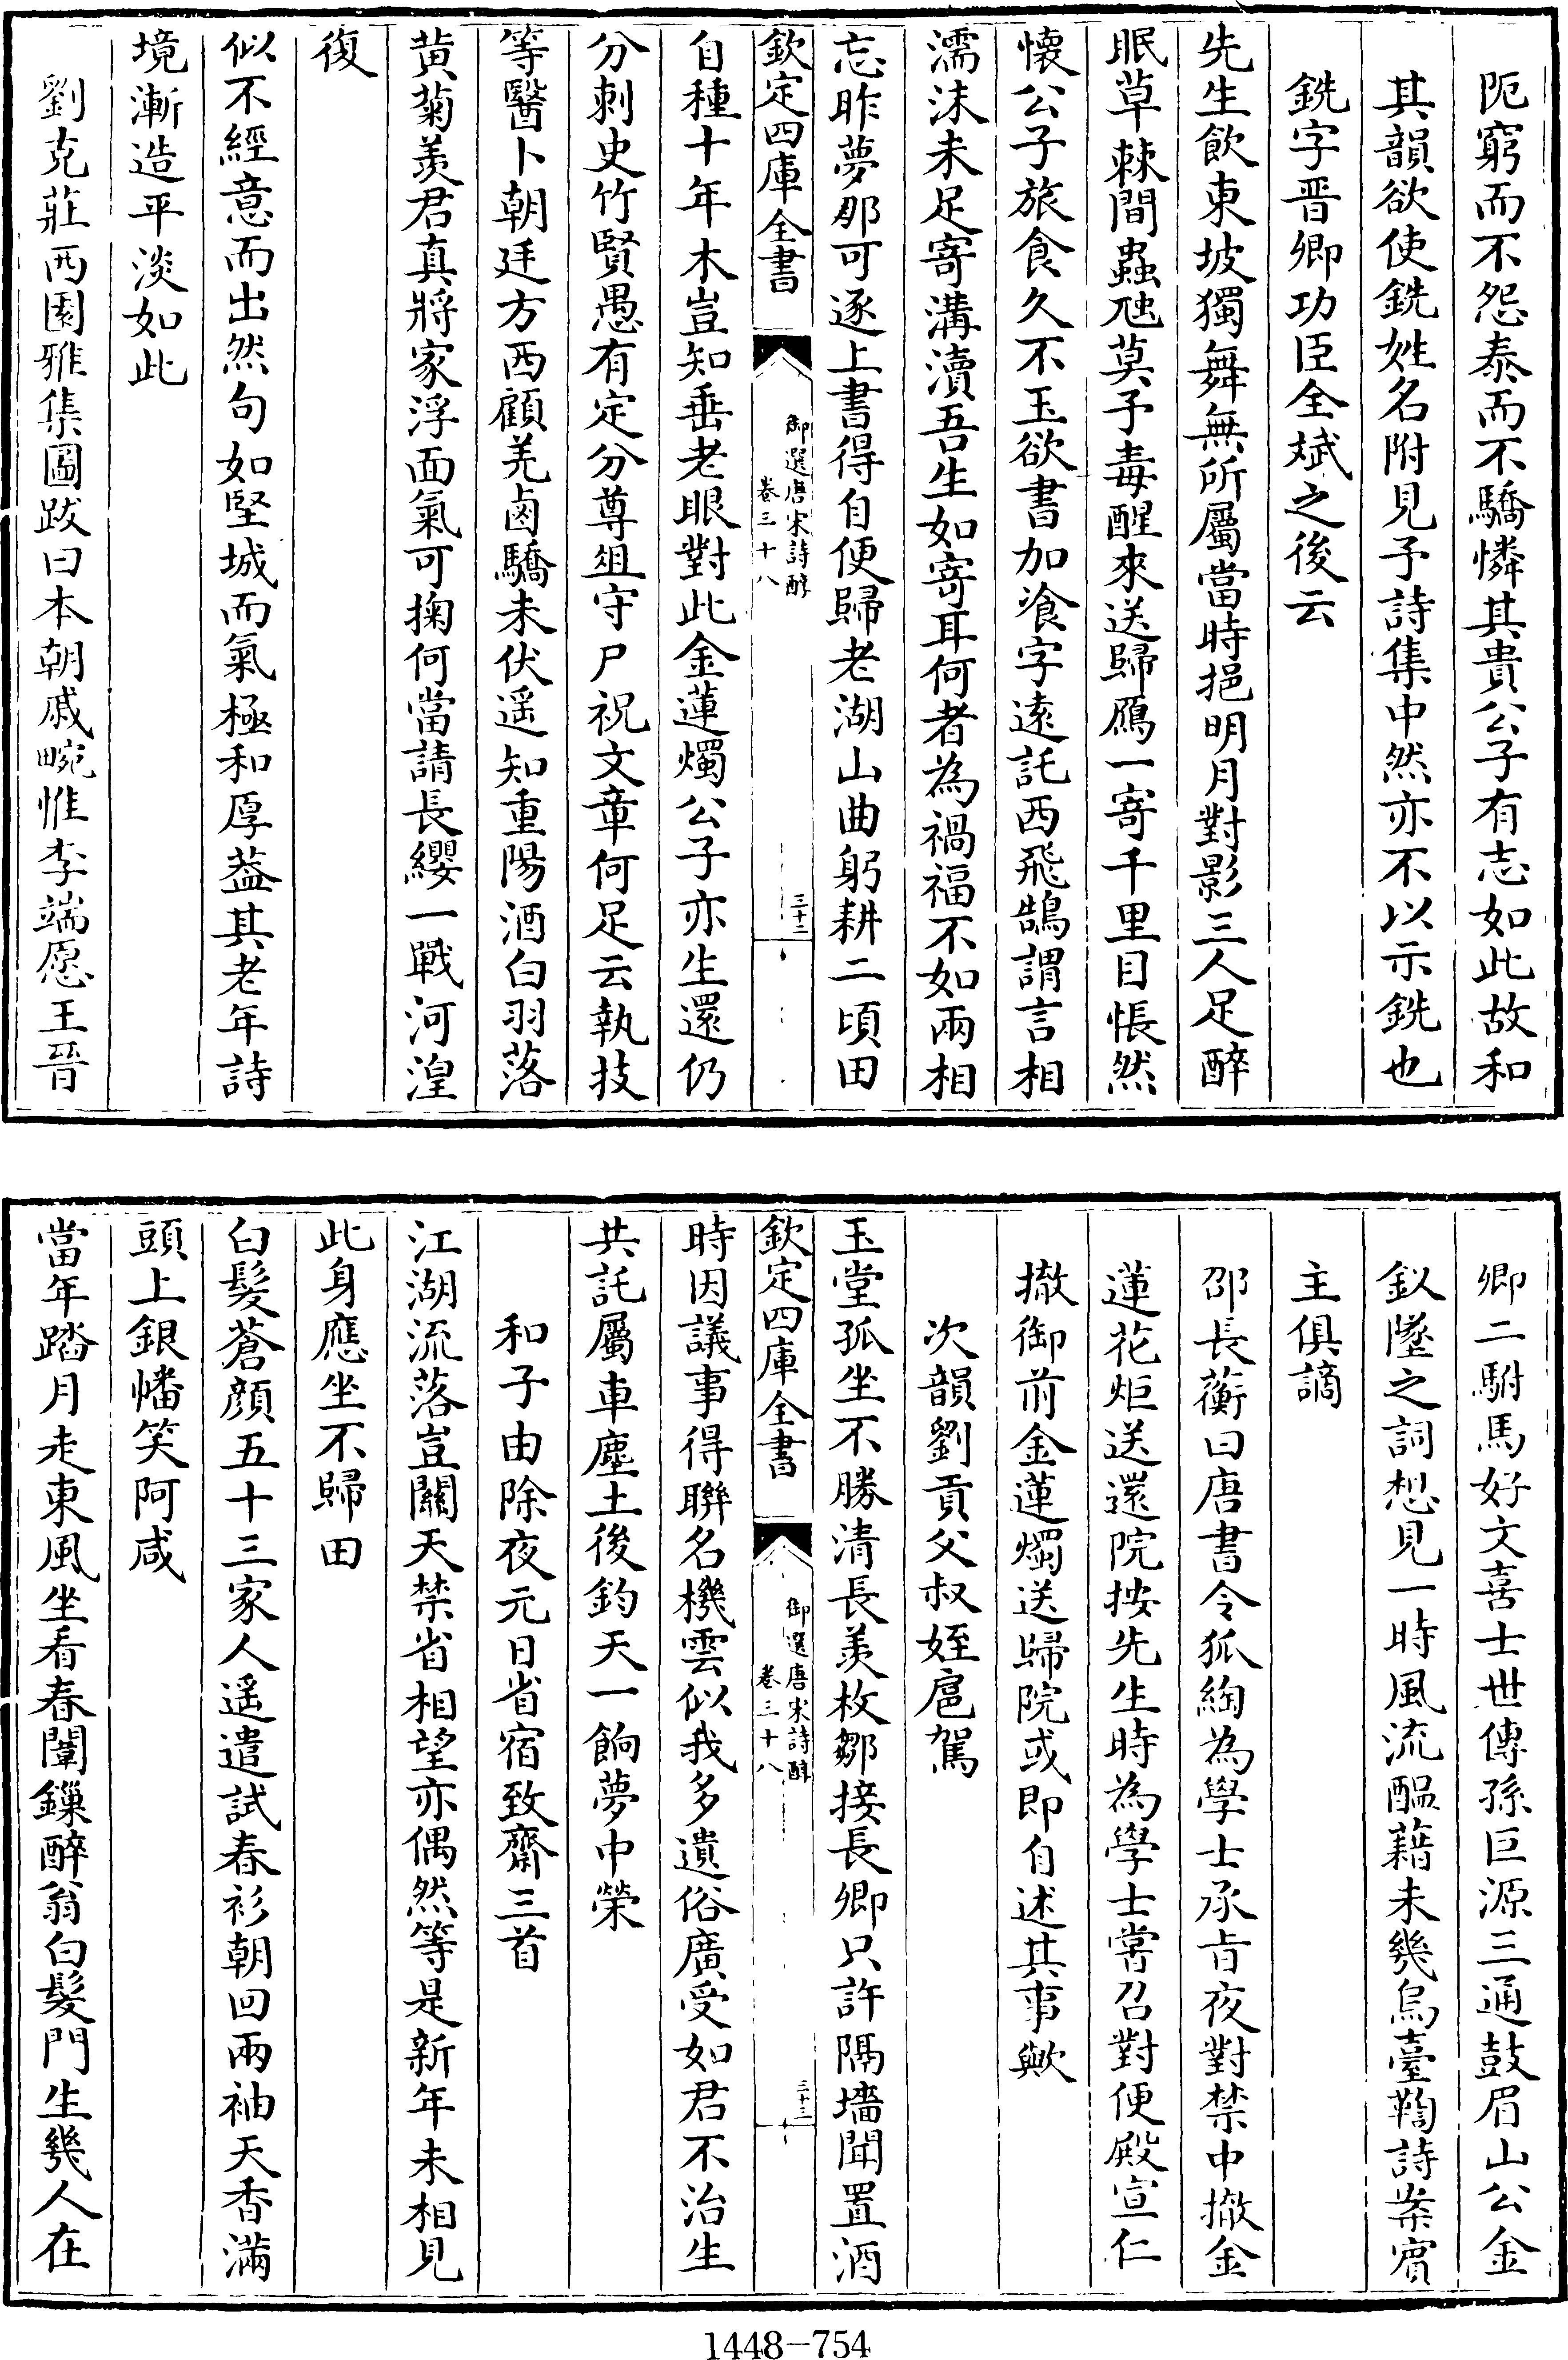 阨窮而不怨泰而不驕憐其貴公子有志如此故和
其韻欲使銑姓名附見予詩集中然亦不以示銑也
銑字晋卿功臣全斌之後云
先生飲東坡獨舞無所屬當時挹明月對影三人足醉
眠草棘間蟲虺莫予毒醒來送歸鴈一寄千里目悵然
懐公子旅食久不玉欲書加飡字逺託西飛鵠謂言相
濡沫未足寄溝瀆吾生如寄耳何者為禍福不如兩相
忘昨夢那可逐上書得自便歸老湖山曲躬耕二頃田
欽定四庫全書
御選唐宋詩醇
卷三十八
三十二
自種十年木豈知垂老眼對此金蓮燭公子亦生還仍
分刺史竹賢愚有定分尊俎守尸祝文章何足云執技
等醫卜朝廷方西顧羌鹵驕未伏遥知重陽酒白羽落
黄菊羨君真將家浮面氣可掬何當請長纓一戰河湟
復
似不經意而出然句如堅城而氣極和厚葢其老年詩
境漸造平淡如此
劉克莊西園雅集圖跋曰本朝戚畹惟李端愿王晉
卿二駙馬好文喜士世傳孫巨源三通鼓眉山公金
釵墜之詞想見一時風流醖藉未幾烏臺鞫詩案賔
主俱謫
邵長蘅曰唐書令狐綯為學士承㫖夜對禁中撤金
蓮花炬送還院按先生時為學士嘗召對便殿宣仁
撤御前金蓮燭送歸院或即自述其事歟
次韻劉貢父叔姪扈駕
玉堂孤坐不勝清長羨枚鄒接長卿只許隔墻聞置酒
欽定四庫全書
御選唐宋詩醇
卷三十八
三十三
時因議事得聯名機雲似我多遺俗廣受如君不治生
共託屬車塵土後鈞天一餉夢中榮
和子由除夜元日省宿致齋三首
江湖流落豈關天禁省相望亦偶然等是新年未相見
此身應坐不歸田
白髮蒼顔五十三家人遥遣試春衫朝回兩袖天香滿
頭上銀幡笑阿咸
當年踏月走東風坐看春闈鏁醉翁白髮門生幾人在
1448—754